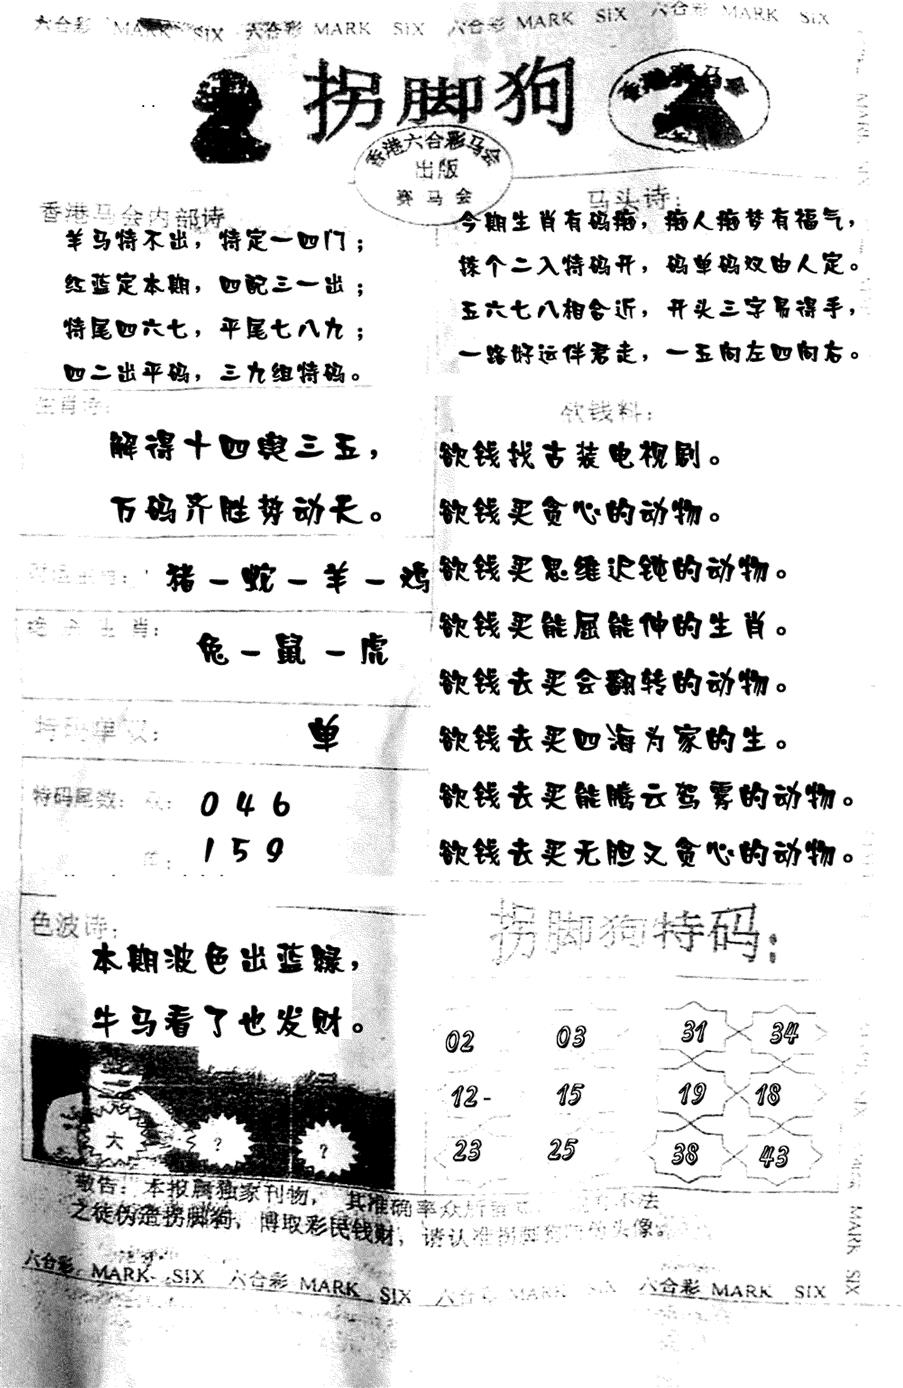 六合彩 MARK SIX 六合彩 MARK SIX 六合彩 MARK SIX 六合彩 MARK SIX
拐脚狗
香港赛马会
香港六合彩马会
出版
赛马会
香港马会内部诗
羊马特不出，特定一四门；
红蓝定本期，四配三一出；
特尾四六七，平尾七八九；
四二出平码，三九组特码。
马头诗：
今期生肖有码痴，痴人痴梦有福气，
拣个二入特码开，码单码双由人定。
五六七八相合近，开头三字易得手，
一路好运伴君走，一五向左四向右。
生肖诗：
解得十四舆三五，
万码齐胜势动天。
猪－蛇－羊－鸡
生肖：
兔－鼠－虎
特码单双：
单
特码尾数：双：
046
单：
159
欲钱料：
欲钱找古装电视剧。
欲钱买贪心的动物。
欲钱买思维迟钝的动物。
欲钱买能屈能伸的生肖。
欲钱去买会翻转的动物。
欲钱去买四海为家的生。
欲钱去买能腾云驾雾的动物。
欲钱去买无胆又贪心的动物。
色波诗：
本期波色出蓝绿，
牛马看了也发财。
大 ? ?
拐脚狗特码：
02 03 31 34
12- 15 19 18
23 25 38 43
敬告：本报属独家刊物，其准确率众所 不法
之徒伪造拐脚狗，博取彩民钱财，请认准拐脚狗 头像。
六合彩 MARK SIX 六合彩 MARK SIX 六合彩 MARK SIX 六合彩 MARK SIX
MARK SIX